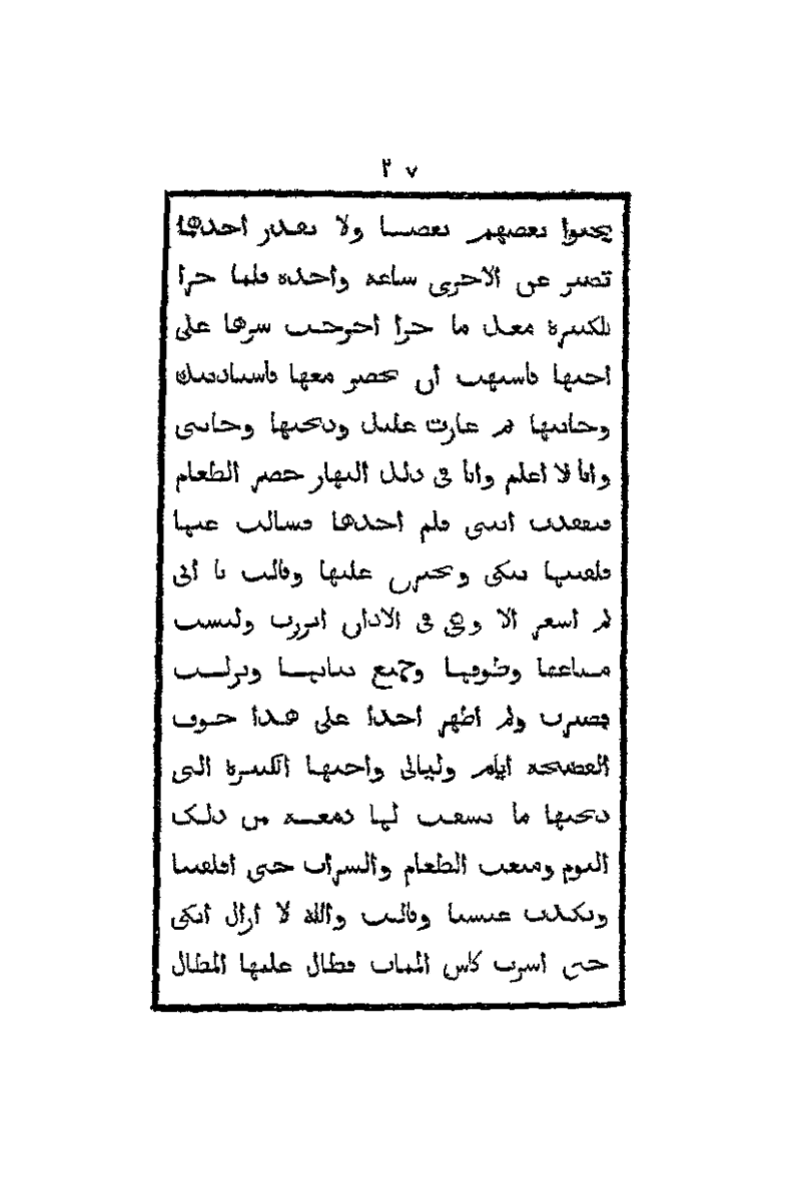 ٢٧
يحبوا بعضهم بعضا ولا تقدر احدهما
تصبر عن الاخرى ساعة واحدة فلما جرا
للكبيرة معك ما جرا اخرجت سرها على
اختها فاشتهت ان تحضر معها فاستاذنتك
وجابتها ثم غارت عليك وذبحتها وجاتنى
وانا لا اعلم وانا فى ذلك النهار حضر الطعام
فتفقدت ابنتى فلم اجدها فسالت عنها
فلقيتها تبكى عليها وقالت يا ابى
لم اشعر الا وهى فى الاذان اتزرت ولبست
وطوقها وجميع ثيابها ونزلت
فصبرت ولم اظهر احدا على هذا خوف
الفضيحة ايام وليالى واختها الكبيرة التى
ذبحتها ما نشفت لها دمعة من ذلك
اليوم ومنعت الطعام والشراب حتى اقلقتنا
ونكدت عيشنا وقالت والله لا ازال ابكى
حتى اشرب كاس الممات فطال عليها المطال